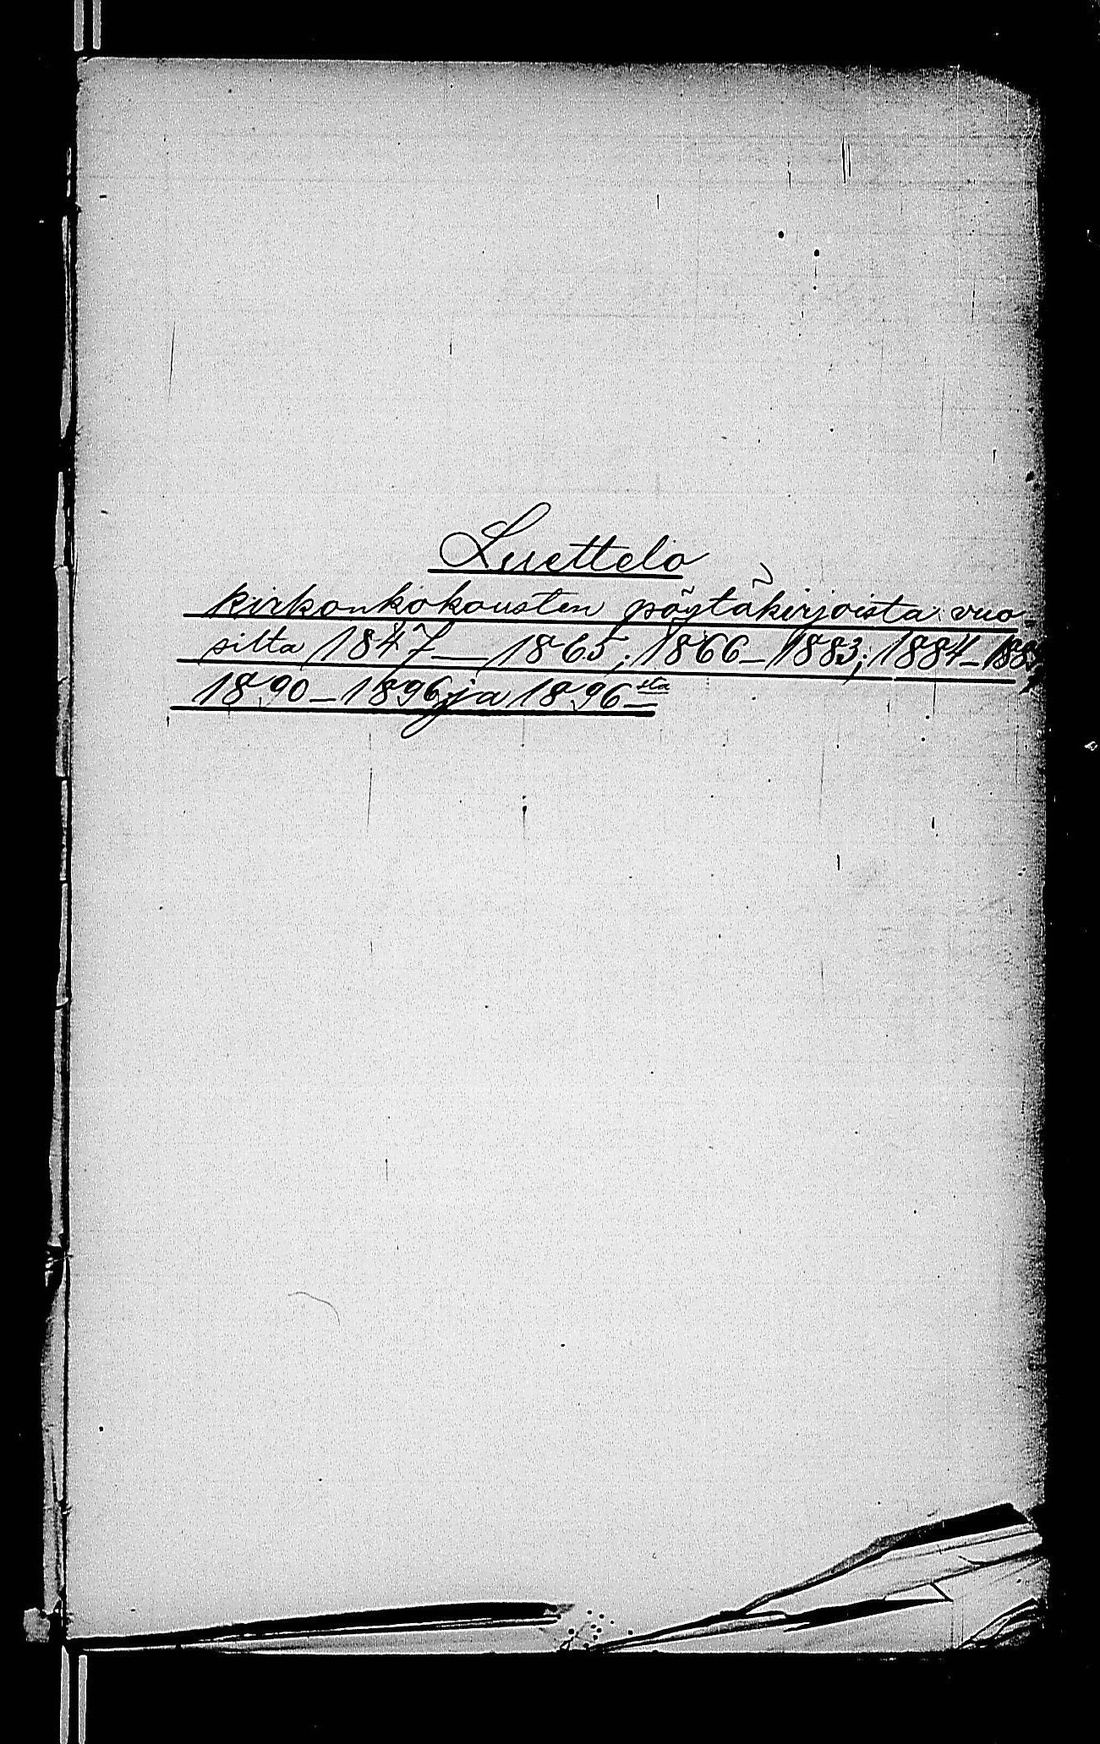 Luettelo
kirkonkokousten pöytäkirjoista vuo-
silta 1847–1865; 1866–1883; 1884–
1890–1896 ja 1896–sta